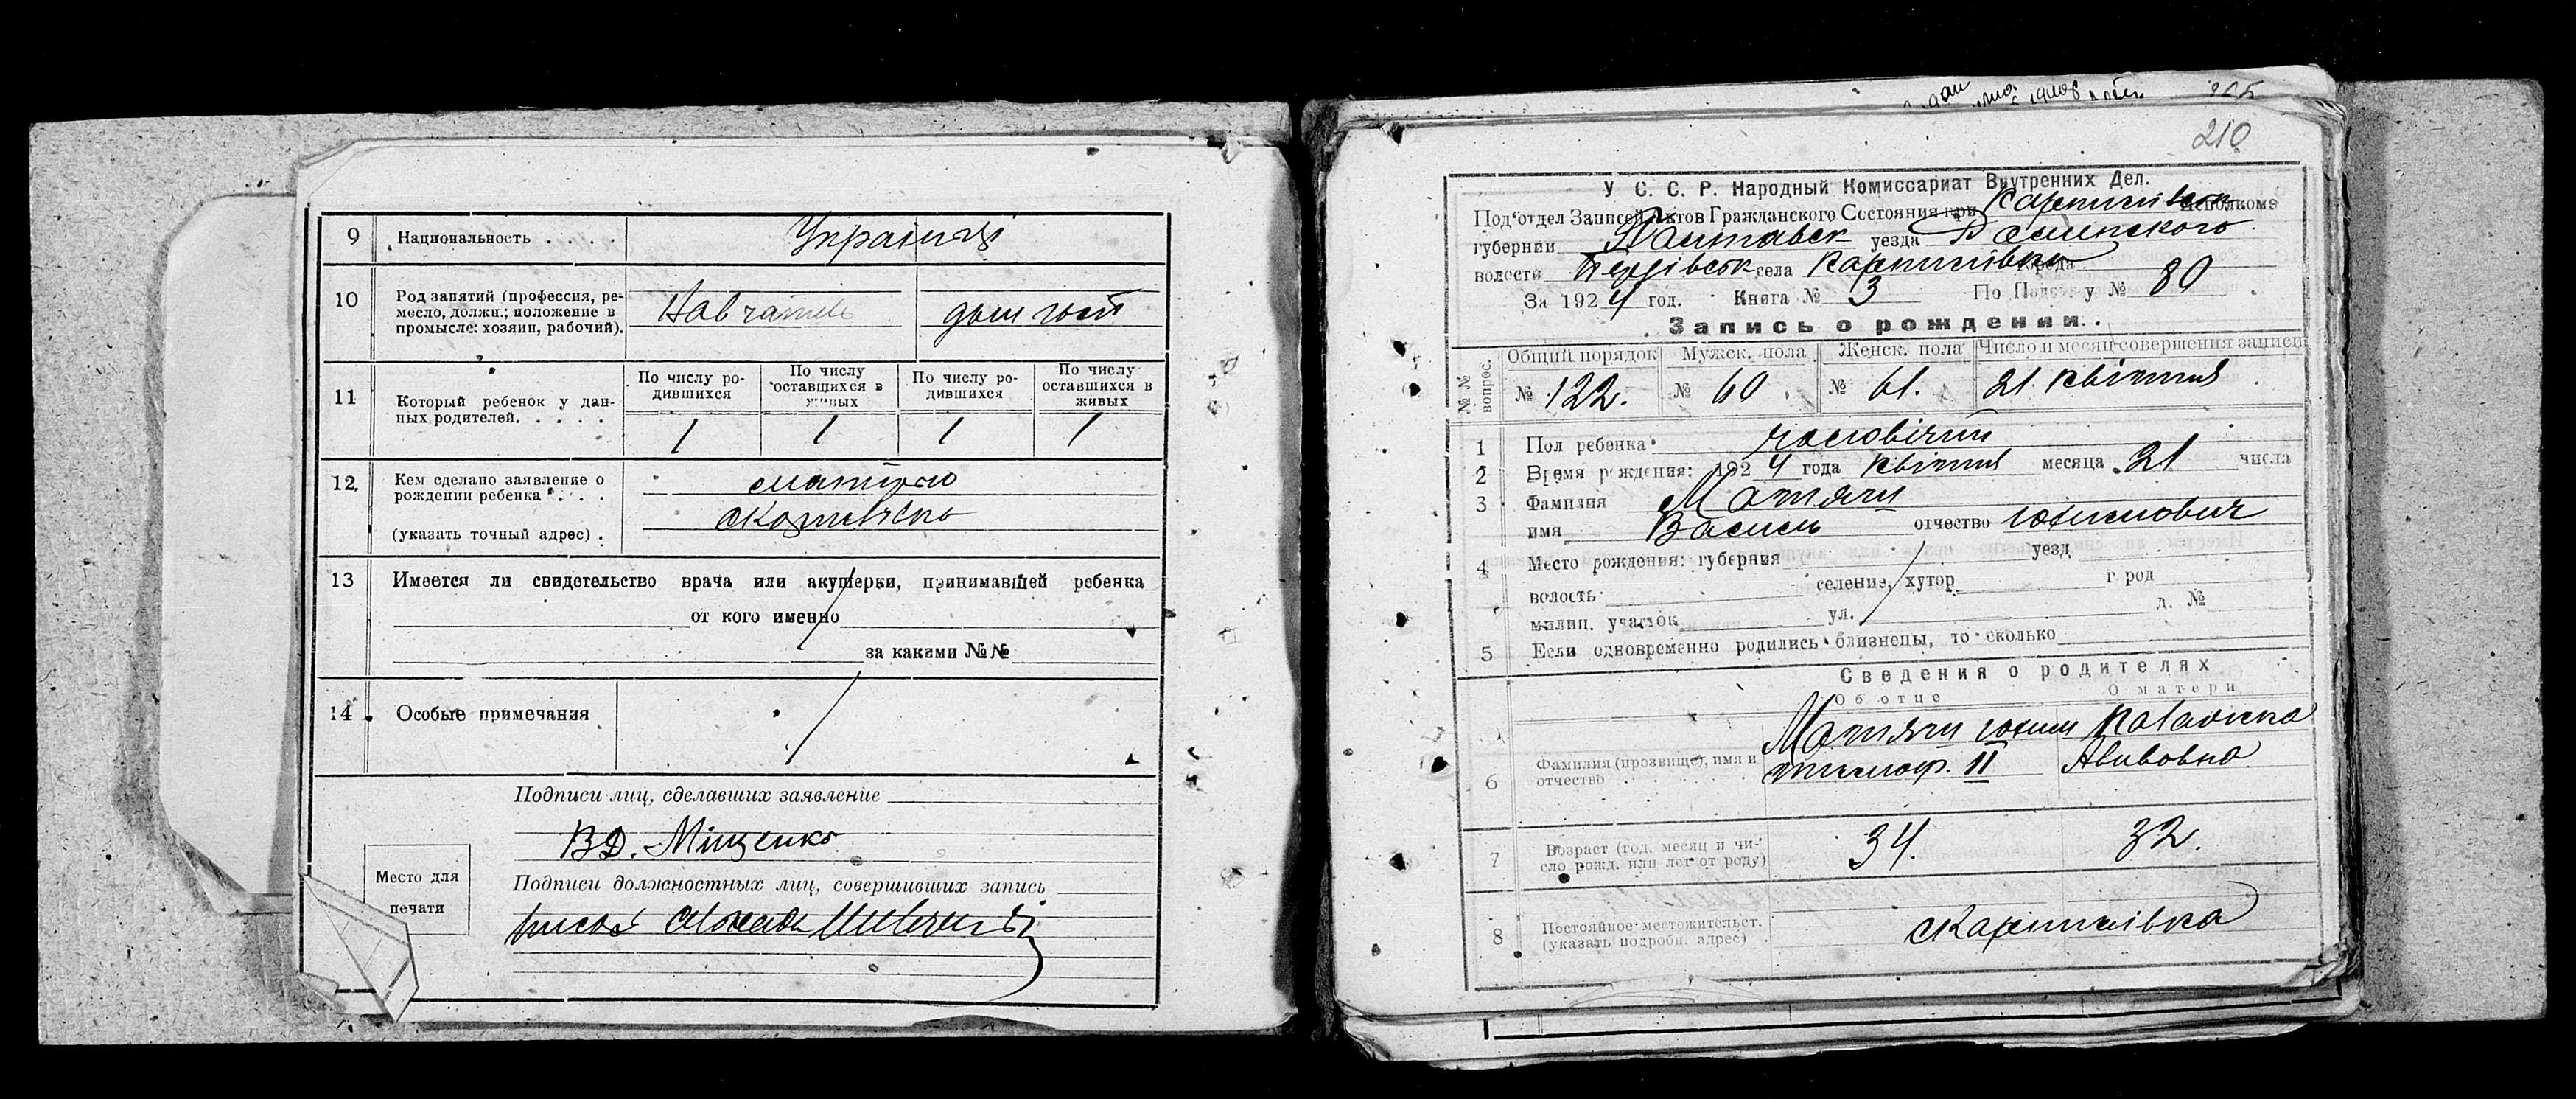 9 Национальность . . . . Українці
10 Род занятий (профессия, ре-
месло, должн.; положение в
промысле: хозяин, рабочий).
11 Который ребенок у дан-
ных родителей. . . . .
По числу ро-
дившихся
По числу
оставшихся в
живых
По числу ро-
дившихся
По числу
оставшихся в
живых
1 1 1 1
12. Кем сделано заявление о
рождении ребенка . . . .
(указать точный адрес) .
13 Имеется ли свидетельство врача или акушерки, принимавшей ребенка
от кого именно
за какими №№
14 Особые примечания
Подписи лиц, сделавших заявление
ВД. Міщенко
Место для
печати
Подписи должностных лиц, совершивших запись
210
У С. С. Р. Народный Комиссариат Внутренних Дел.
Под'отдел Записей Актов Гражданского Состояния при Исполкоме
губернии Полтавск уезда
волости села Карпилівка города
За 1924 год. Книга № 3 По Под у № 80
Запись о рождении.
№№ вопрос.
Общий порядок Мужск. пола Женск. пола Число и месяц совершения записи
№ 122. № 60 № 61. 21 квітння
1 Пол ребенка чоловічий
2 Время рождения: 1924 года квітня месяца 21 числа
3 Фамилия Матяш
имя Василь отчество Юхимович
4 Место рождения: губерния уезд
волость селение, хутор город
милиц. участок ул. д. №
5 Если одновременно родились близнецы, то сколько
Сведения о родителях
Об отце О матери
6 Фамилия (прозвище), имя и
отчество
Матяш Юхим
II
7 Возраст (год, месяц и чи-
сло рожд. или лет от роду)
34. 32.
8 Постоянное местожительст.
(указать подробн. адрес) .
с Карпилівка